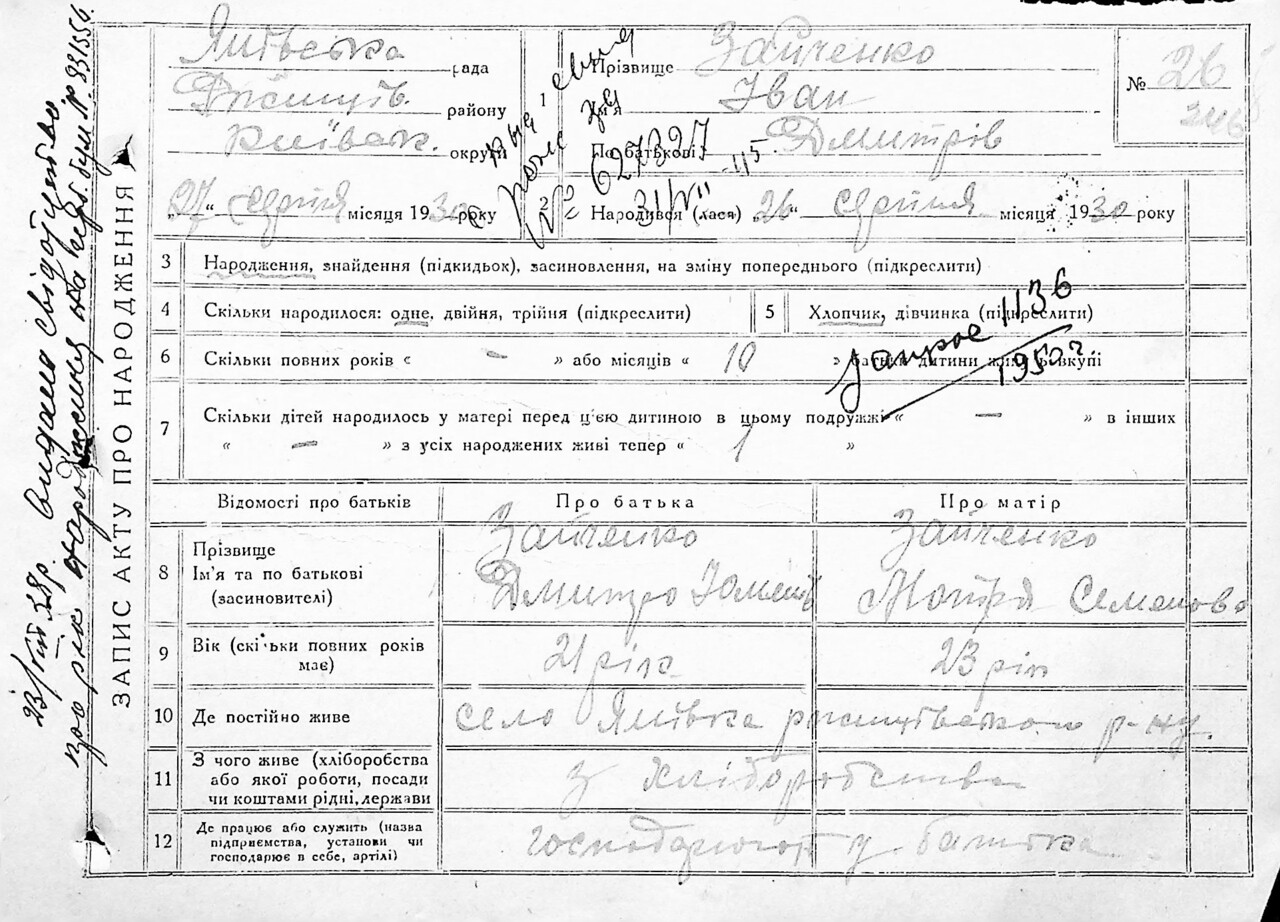 23/VIII 58р. видано свідоцтво
про народження на підс. бум. № 831556.
ЗАПИС АКТУ ПРО НАРОДЖЕННЯ
рада
району
Київськ. округи
„27“ серпня місяця 1930 року
1 Прізвище Зайченко
Ім'я Іван
По батькові Дмитрів
№ 26
№ 627327
31/VII 45
2 Народився (лася) 26“ серпня місяця 1930 року
3 Народження, знайдення (підкидьок), засиновлення, на зміну попереднього (підкреслити)
4 Скільки народилося: одне, двійня, трійня (підкреслити)
5 Хлопчик, дівчинка (підкреслити)
1136
1950 г.
6 Скільки повних років « – » або місяців « 10 » батьки дитини живуть вкупі
7 Скільки дітей народилось у матері перед ц'єю дитиною в цьому подружжі « – » в інших
« – » з усіх народжених живі тепер « 1 »
Відомості про батьків Про батька Про матір
8 Прізвище Зайченко Зайченко
Ім'я та по батькові Дмитро Мотря Семенова
(засиновителі)
9 Вік (скільки повних років має) 21 рік 23 рік
10 Де постійно живе село р-ну.
11 З чого живе (хліборобства
або якої роботи, посади
чи коштами рідні, держави
з хліборобства
12 Де працює або служить (назва
підприємства, установи чи
господарює в себе, артілі)
у батька